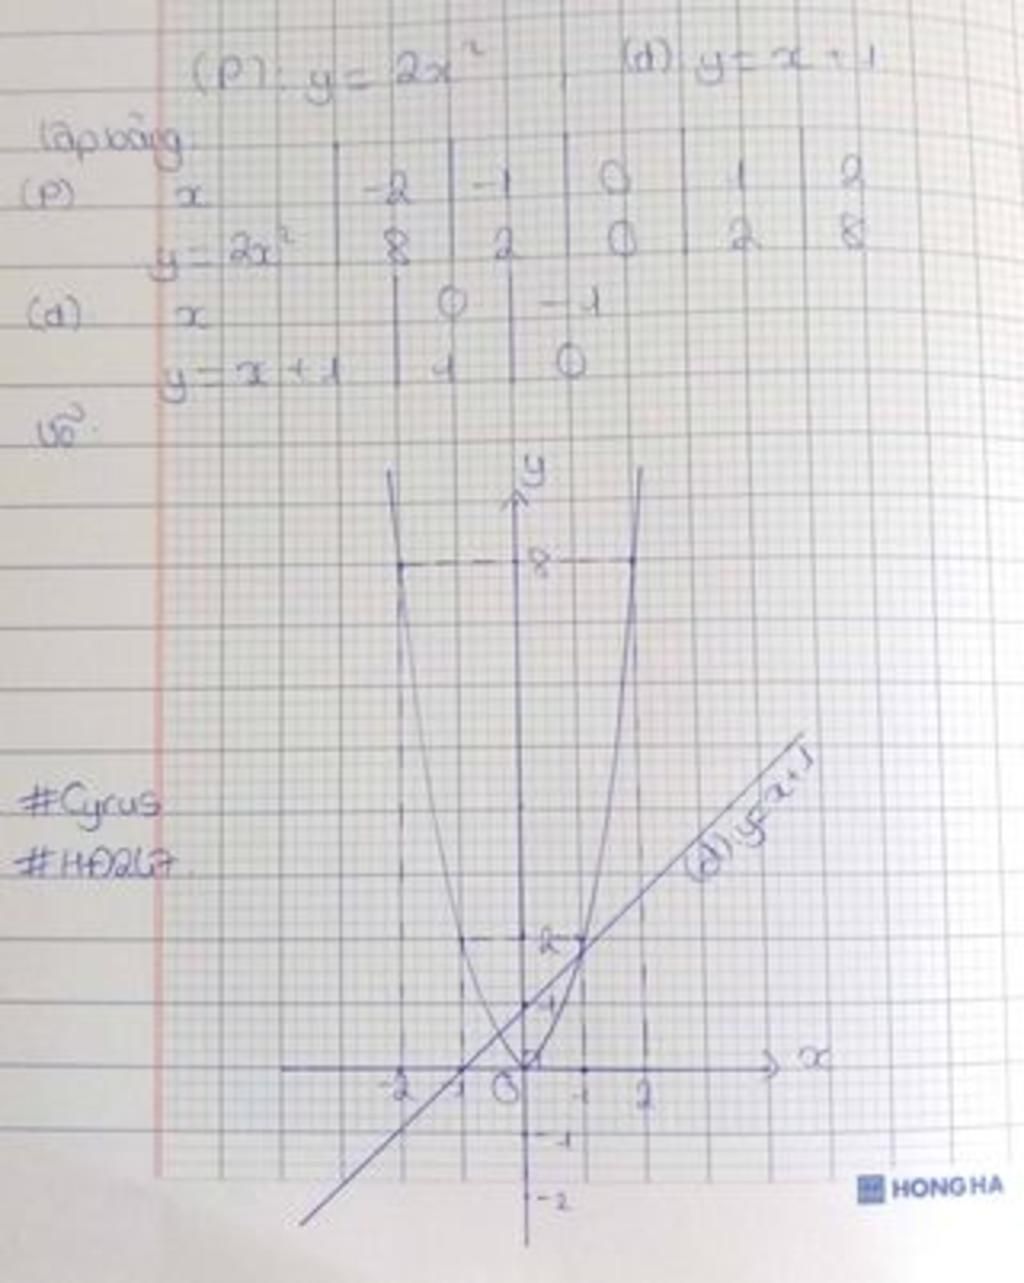 (P): y = 2x² (d) y = x + 1
Lập bảng
(P) x -2 -1 0 1 2
y = 2x² 8 2 0 2 8
(d) x 0 -1
y = x + 1 1 0
Vẽ
y
8
(d): y = x + 1
#Cyrus
2
1
x
-2 -1 O 1 2
-1
HONG HA
-2